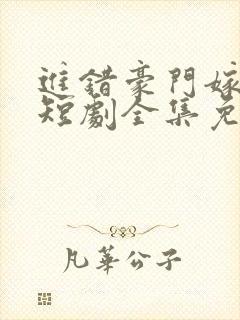 進錯豪門嫁
短劇全集免
凡華公子